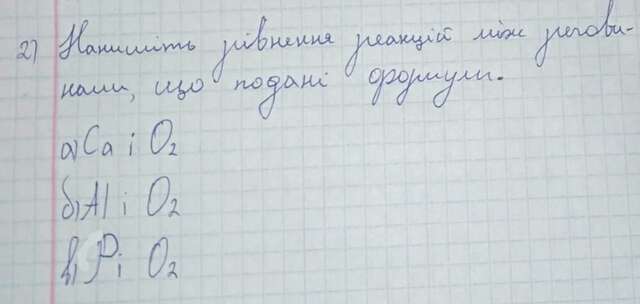 2) Напишіть рівнення реакцій між речови-
нами, що подані формули.
а) Ca і O₂
б) Al і O₂
в) P і O₂